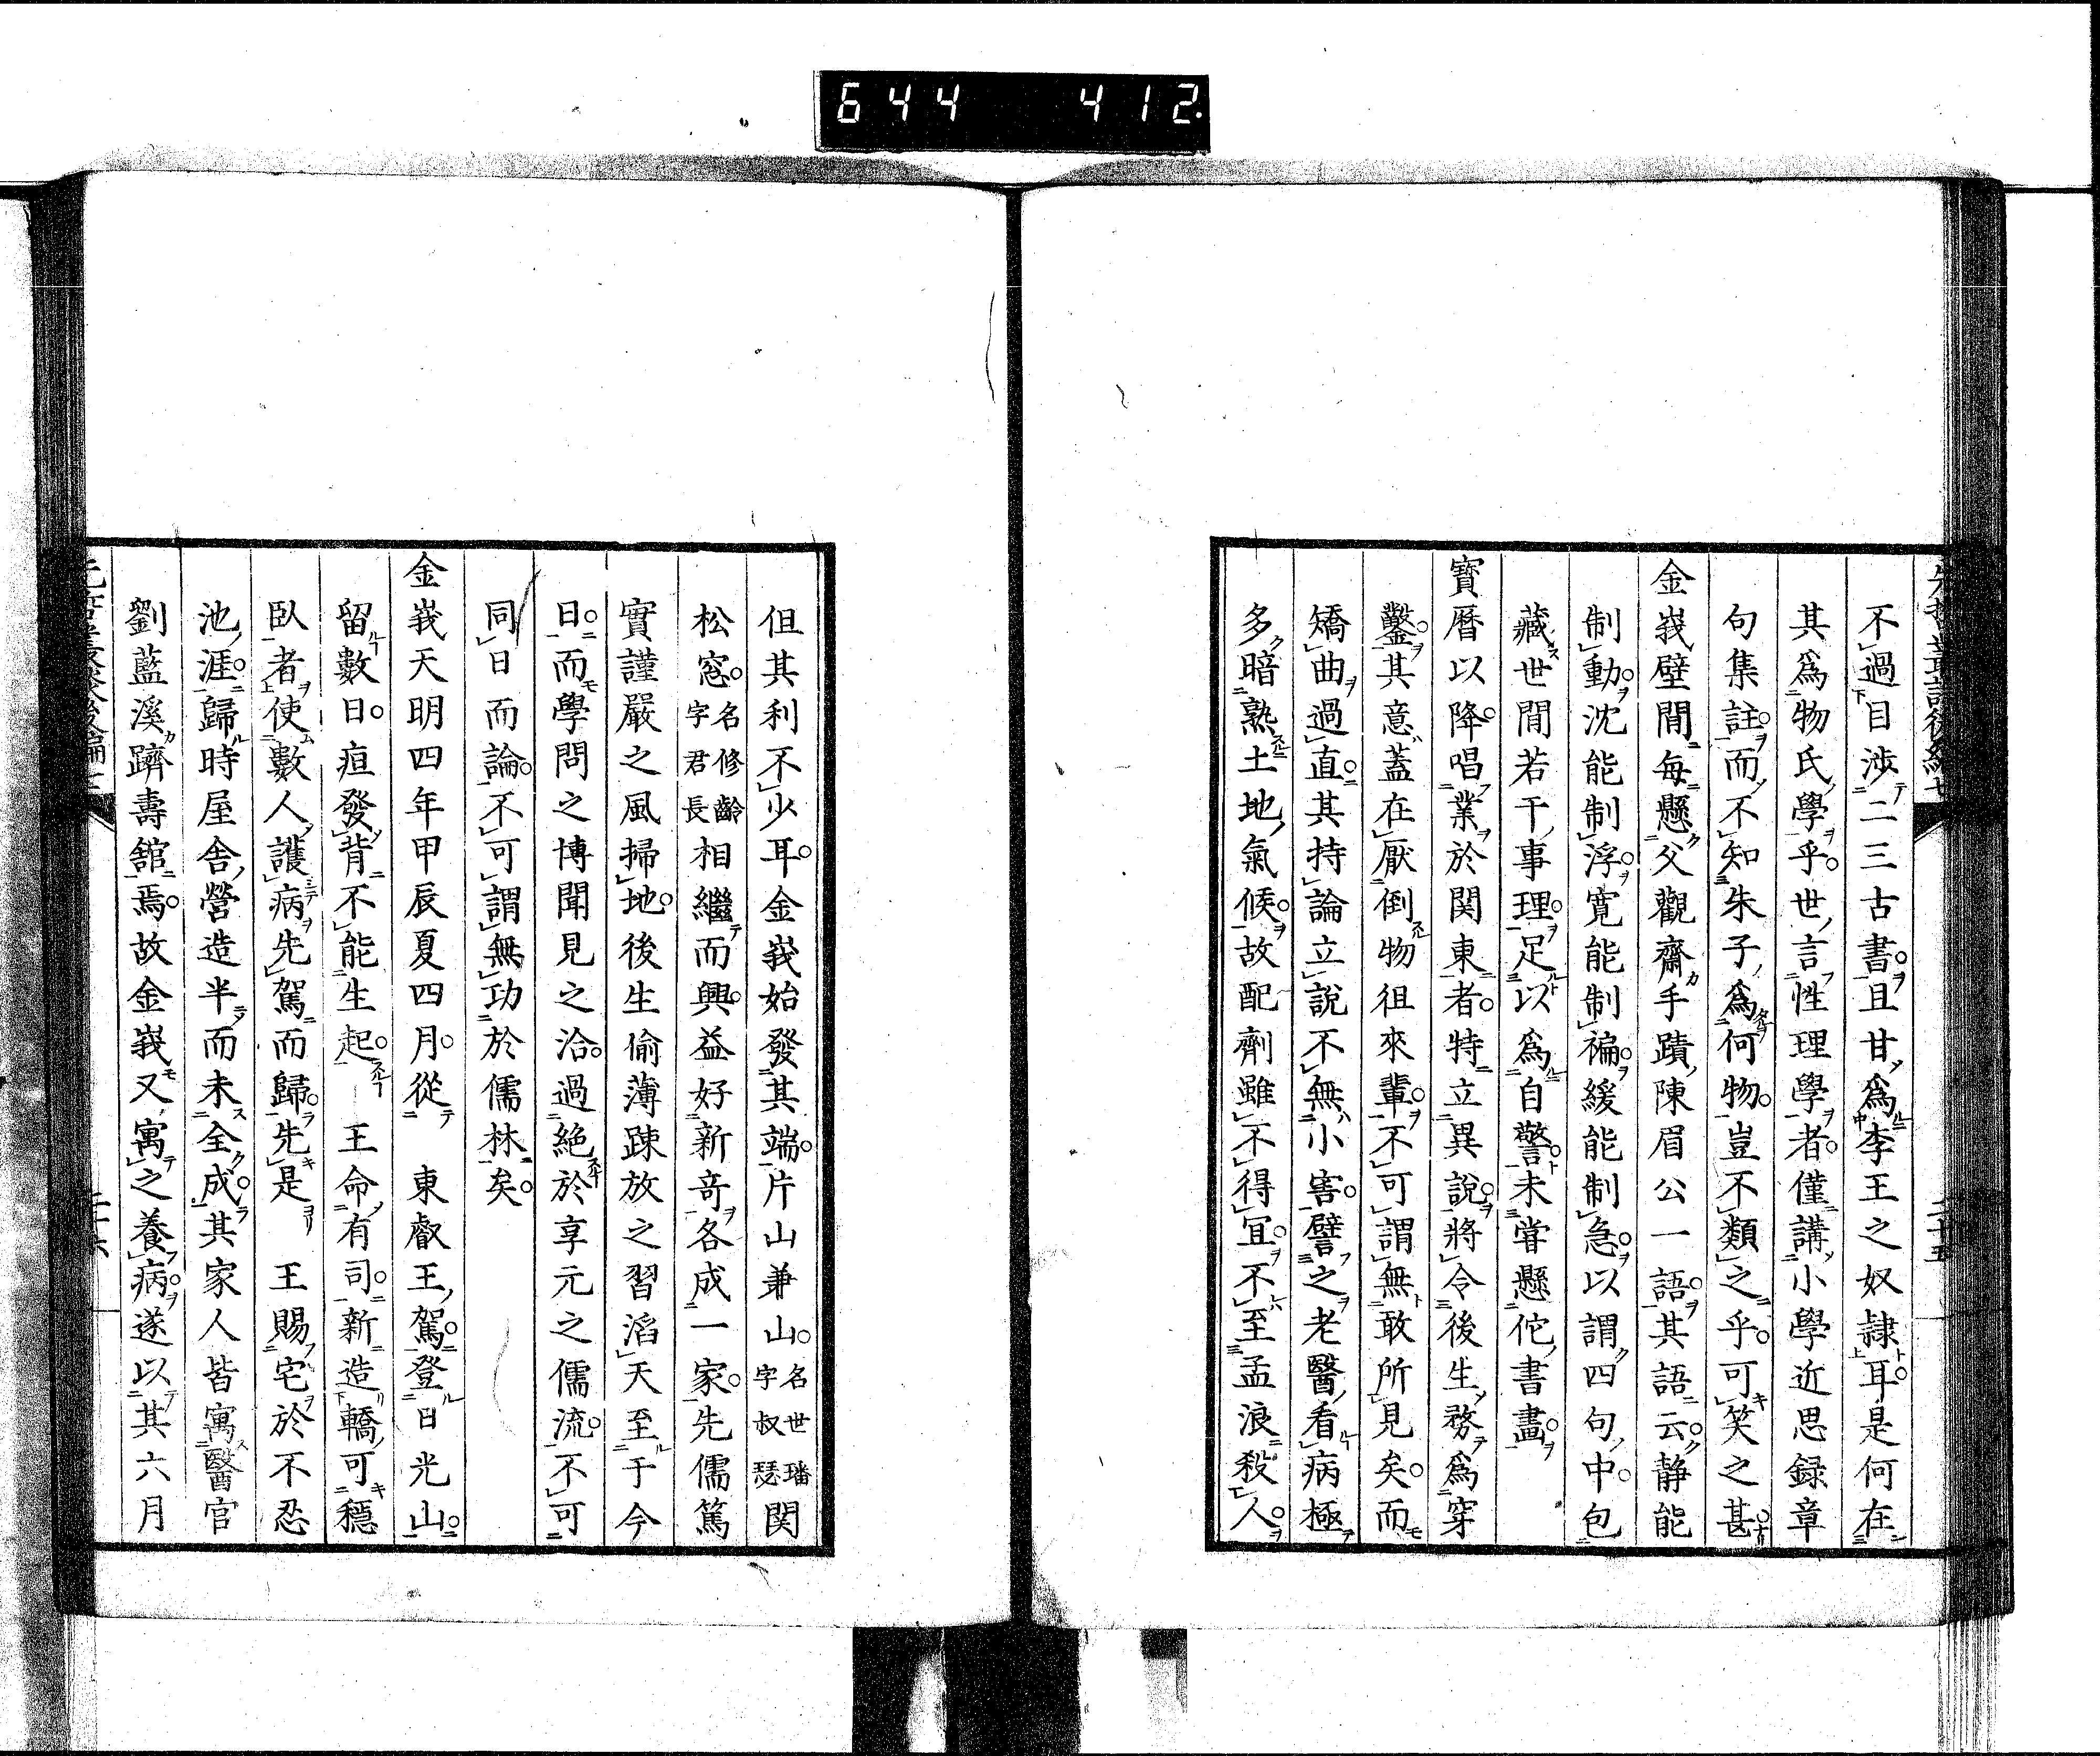 644 412
不過目渉二三古書且甘爲李王之奴隷耳是何在
其爲物氏學乎世言性理學者僅講小學近思録章
句集註而不知朱子爲何物豈不類之乎可笑之甚
金峩壁間毎懸父觀齋手蹟陳眉公一語其語云静能
制動沈能制浮寛能制褊緩能制急以謂四句中包
藏世間若干事理足以爲自警未甞懸佗書畫
寳曆以降唱業於関東者特立異説將令後生務爲穿
鑿其意蓋在厭倒物徂來輩不可謂無敢所見矣而
矯曲過直其持論立説不無小害譬之老醫看病極
多暗熟土地氣候故配劑雖不得宜不至孟浪殺人
但其利不少耳金峩始發其端片山兼山名世璠字叔瑟関
松窓名修齡字君長相繼而興益好新竒各成一家先儒篤
實謹嚴之風掃地後生偷薄踈放之習滔天至于今
日而學問之博聞見之洽過絶於享元之儒流不可
同日而論不可謂無功於儒林矣
金峩天明四年甲辰夏四月從 東叡王駕登日光山
留數日疽發背不能生起 王命有司新造轎可穩
臥者使數人護病先駕而歸先是 王賜宅於不忍
池涯歸時屋舎營造半而未全成其家人皆寓醫官
劉藍溪躋壽舘焉故金峩又寓之養病遂以其六月